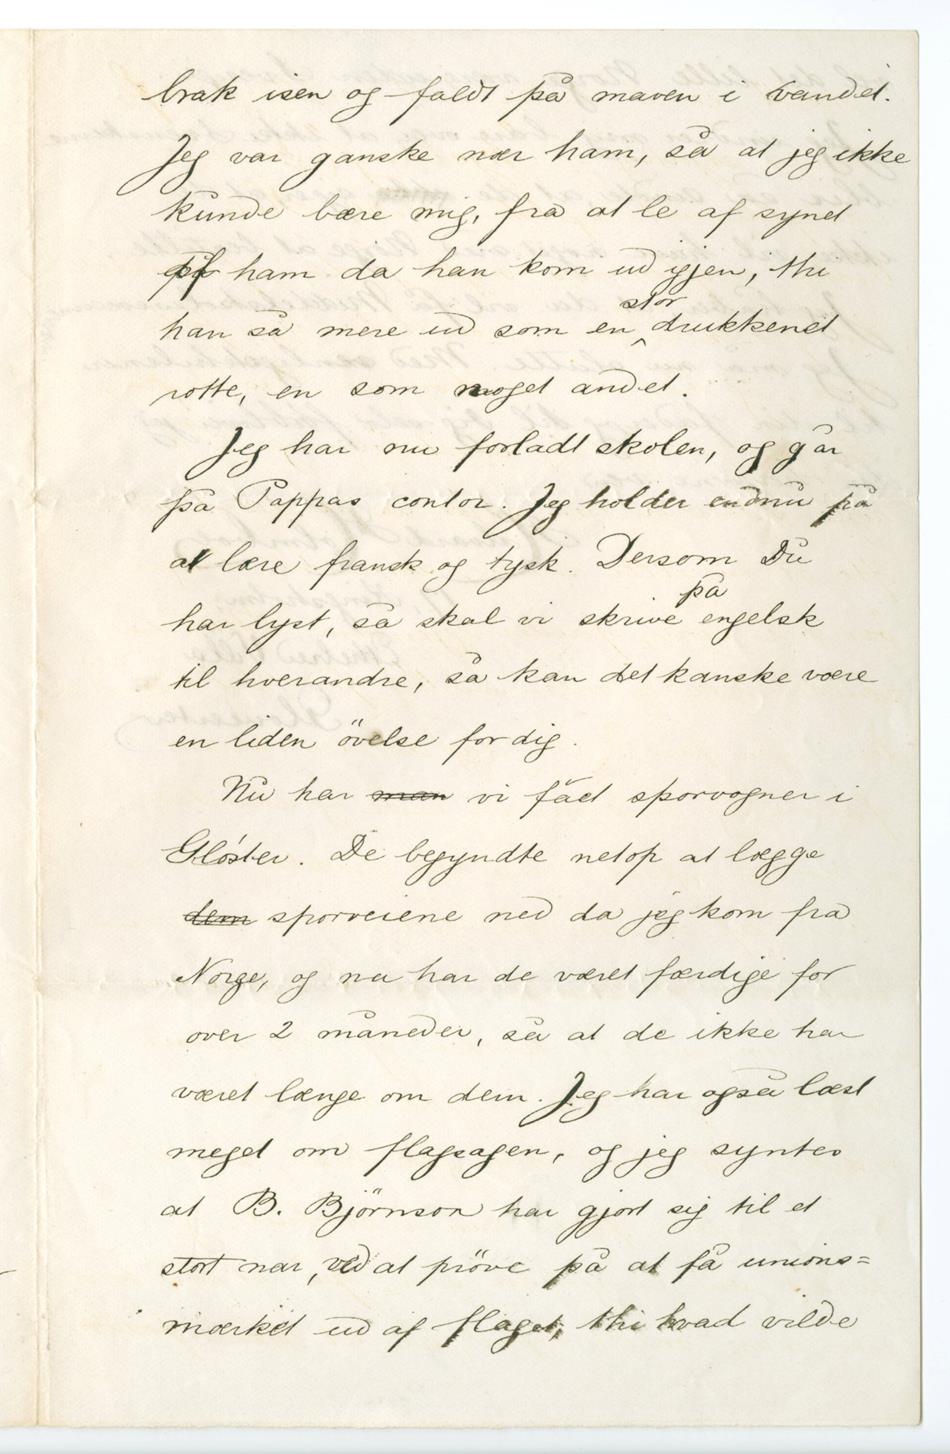 brak isen og faldt på maven i vandet.
Jeg var ganske nær ham, så at jeg ikke
kunde bære mig, fra at le af synet
af ham da han kom ud igjen, thi
han så mere ud som en stor drukkenet
rotte, en som noget andet.
Jeg har nu forladt skolen, og går
på Pappas contor. Jeg holder endnu på
at lære fransk og tysk. Dersom Du
har lyst, så skal vi skrive på engelsk
til hverandre, så kan det kanske være
en liden övelse for dig.
Nu har man vi fåd sporvogner i
Glóster. De begyndte netop at lægge
dem sporveiene ned da jeg kom fra
Norge, og nu har de været færdige for
over 2 måneder, så at de ikke har
været længe om dem. Jeg har også læst
meget om flagsagen, og jeg syntes
at B. Björnson har gjort sig til et
stort nar, ved at pröve på at få unions=
mærket ud af flaget, thi hvad vilde